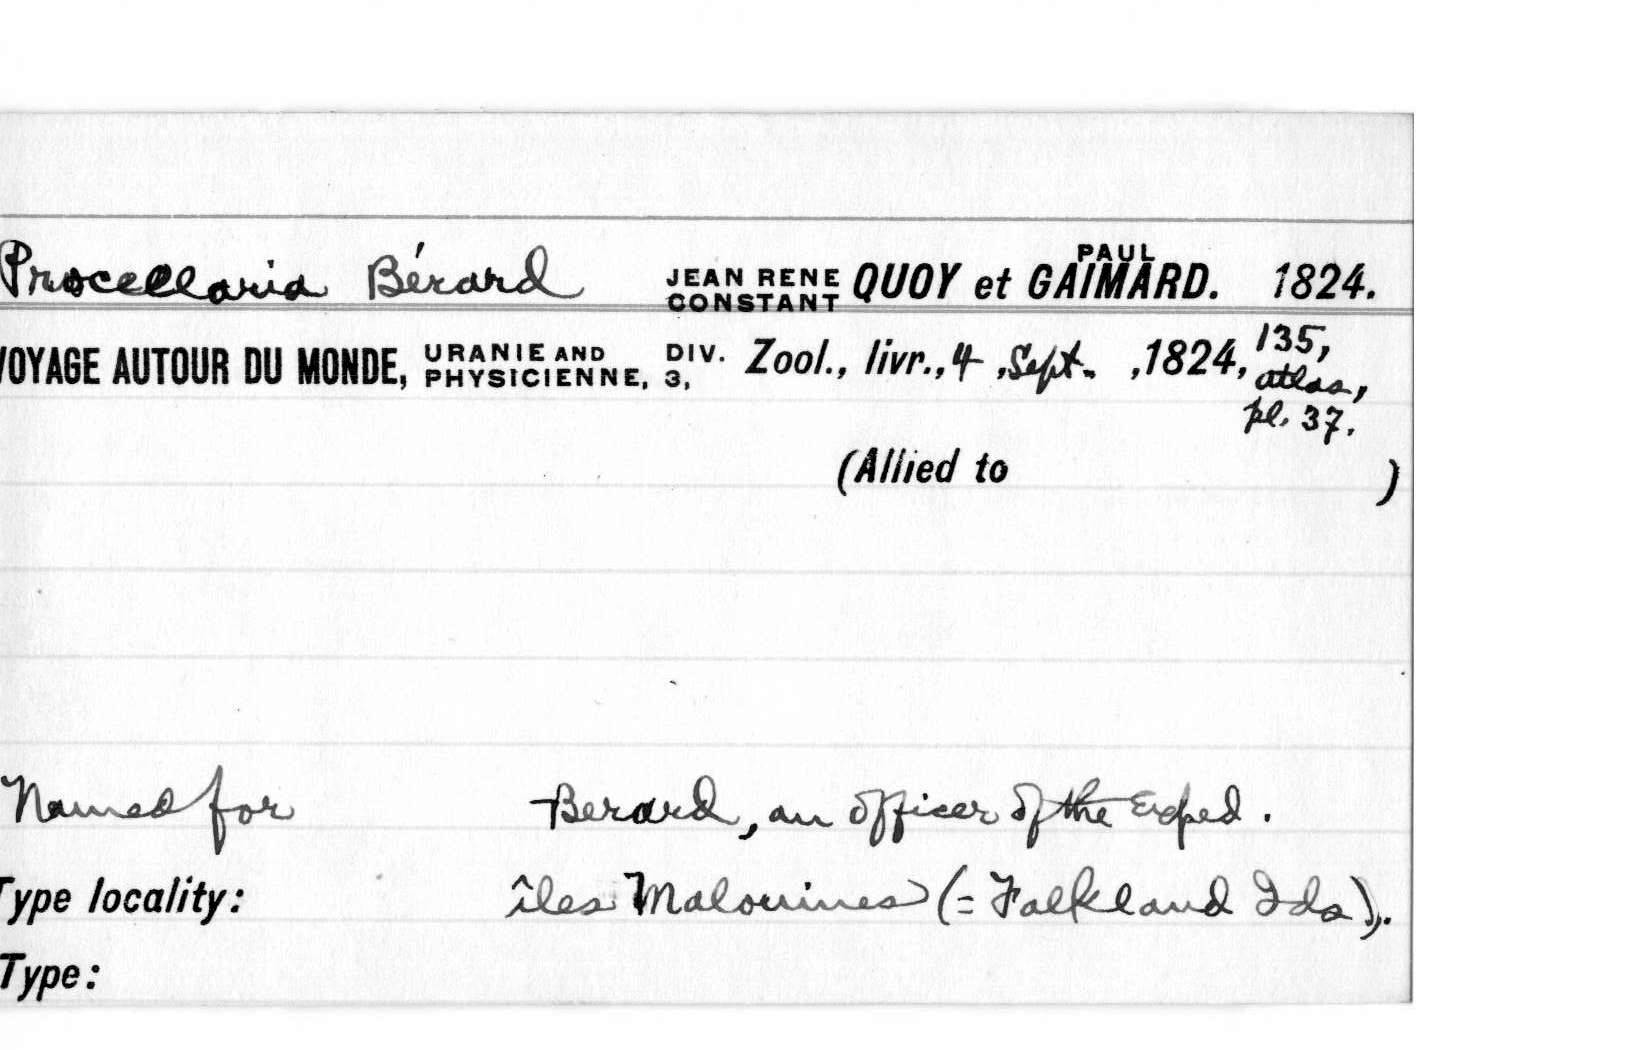 Procellaria Bérard JEAN RENE CONSTANT QUOY et PAUL GAIMARD. 1824.
VOYAGE AUTOUR DU MONDE, URANIE AND PHYSICIENNE, DIV. 3, Zool., livr., 4, Sept. ,1824, 135, atlas, pl. 37.
(Allied to )
Named for Berard, an officer of the Exped.
Type locality: îles Malouines (= Falkland Ids).
Type: